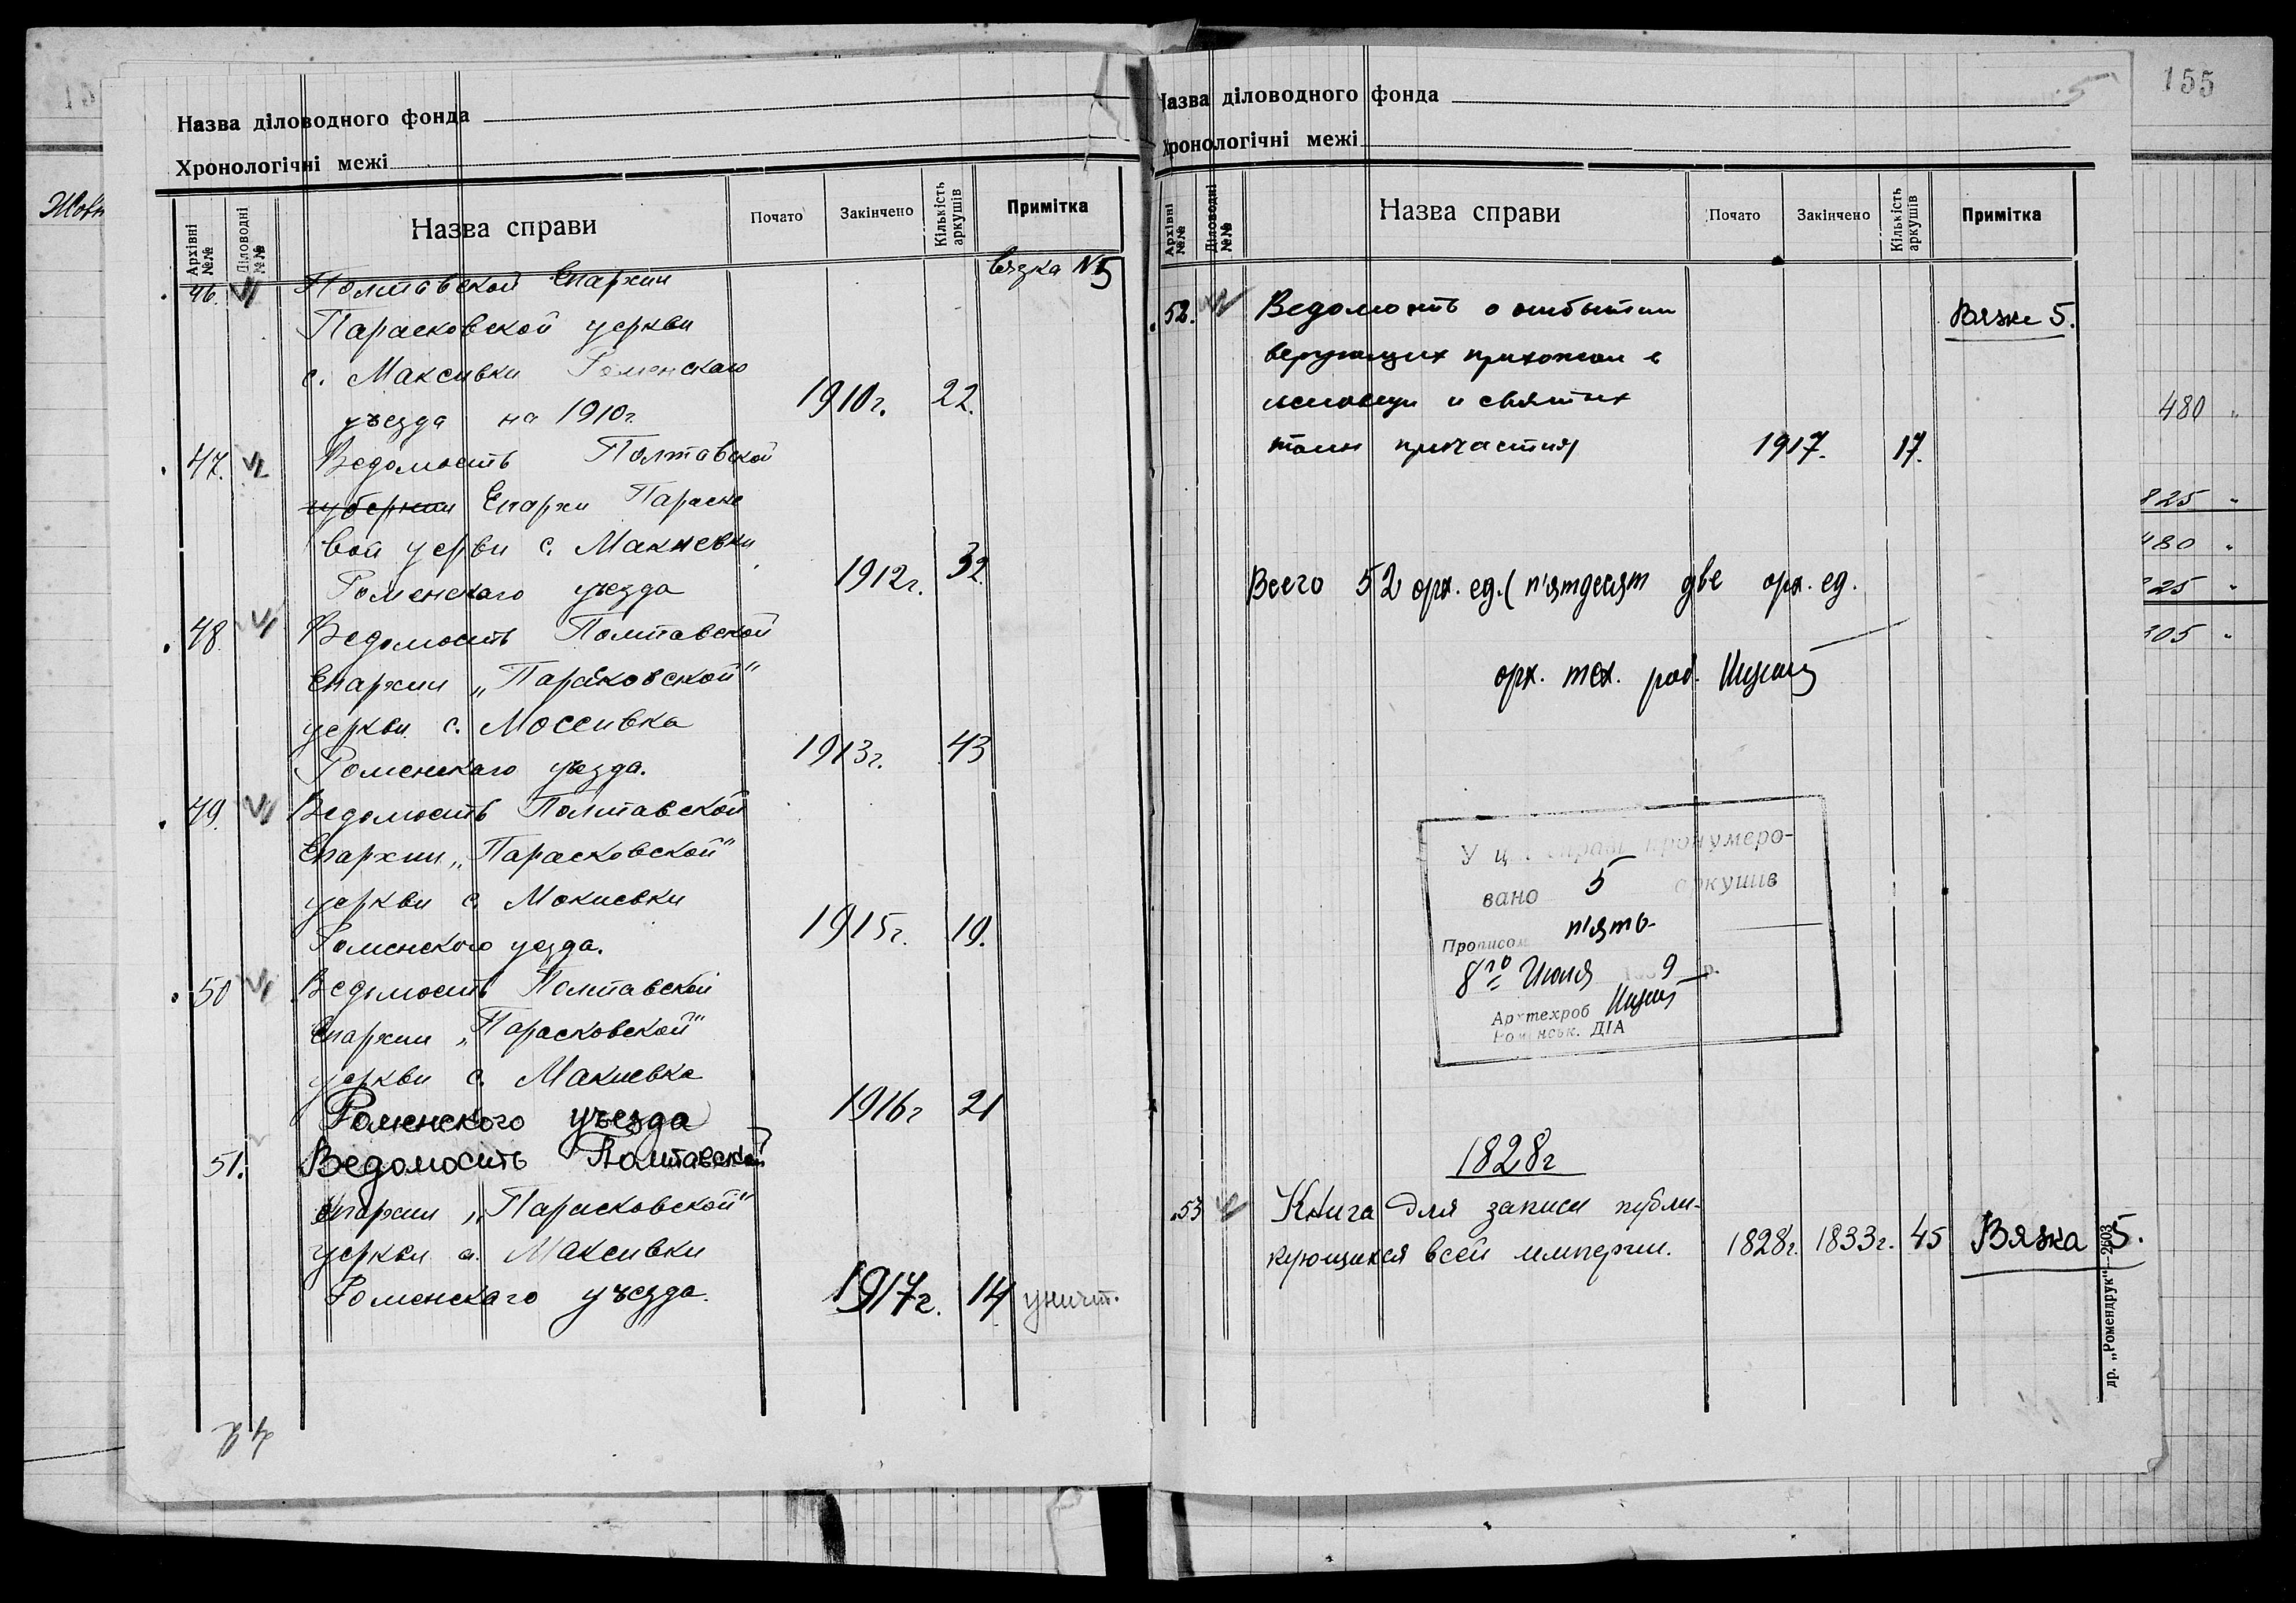 155
5
Назва діловодного фонда
Хронологічні межі
Архівні №№ Діловодні №№ Назва справи Почато Закінчено Кількість аркушів Примітка
46. Полтавской Епархии Вязка №5
Парасковской церкви
с. Максивки Роменскаго
уъезда на 1910г. 1910г. 22.
47. Ведомость Полтавской
губернии Епархи Параске
вой церви с. Макиевки
Роменскаго уъезда 1912г. 32.
48. Ведомость Полтавской
Епархии „Парасковской"
церкви с. Моссивка
Роменскаго уъезда. 1913г. 43
49. Ведомость Полтавской
Епархии „Парасковской"
церкви с. Мокиевки
Роменского уезда. 1915г. 19.
50 Ведомость Полтавской
Епархии „Парасковской"
церкви с. Макиевка
Роменского уъезда 1916г 21
51. Ведомость Полтавской
Епархии „Парасковской"
церкви с. Максивки
Роменскаго уъезда. 1917г. 14 уничт.
Назва діловодного фонда
Хронологічні межі
Архівні №№ Діловодні №№ Назва справи Почато Закінчено Кількість аркушів Примітка
52. Ведомость о отбытии Вязке 5.
верующих прихожан в
исповеди и святых
таин причастия 1917. 17.
Всего 52 арх. ед. (п'ятдесят две арх. ед.
арх. тех. роб.
У ц справі пронумеро-
вано 5 аркушів
Прописом п'ять
8го Июля 9 р.
Архтехроб
Роменськ. ДІА
1828г
53 Книга для записи публи-
кующихся всей империи. 1828г. 1833г. 45 Вязка 5.
др. „Ромендрук"—2603
480 "
825 "
480 "
25 "
305 "